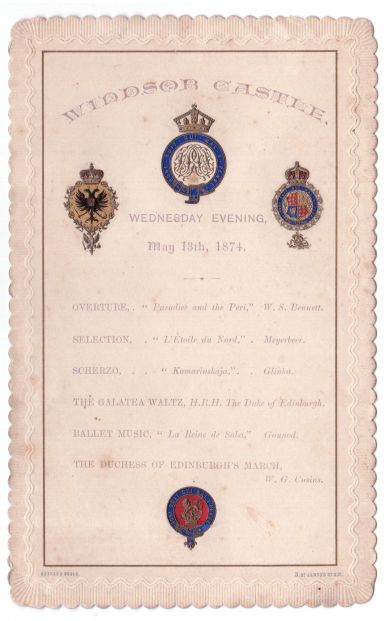 WINDSOR CASTLE.
WEDNESDAY EVENING,
May 13th, 1874.
OVERTURE, . "Paradise and the Peri," W. S. Bennett.
SELECTION, . "L'Étoile du Nord," . Meyerbeer.
SCHERZO, . . "Kamarinskaja," . Glinka.
THE GALATEA WALTZ, H.R.H. The Duke of Edinburgh.
BALLET MUSIC, "La Reine de Saba," Gounod.
THE DUCHESS OF EDINBURGH'S MARCH,
W. G. Cusins.